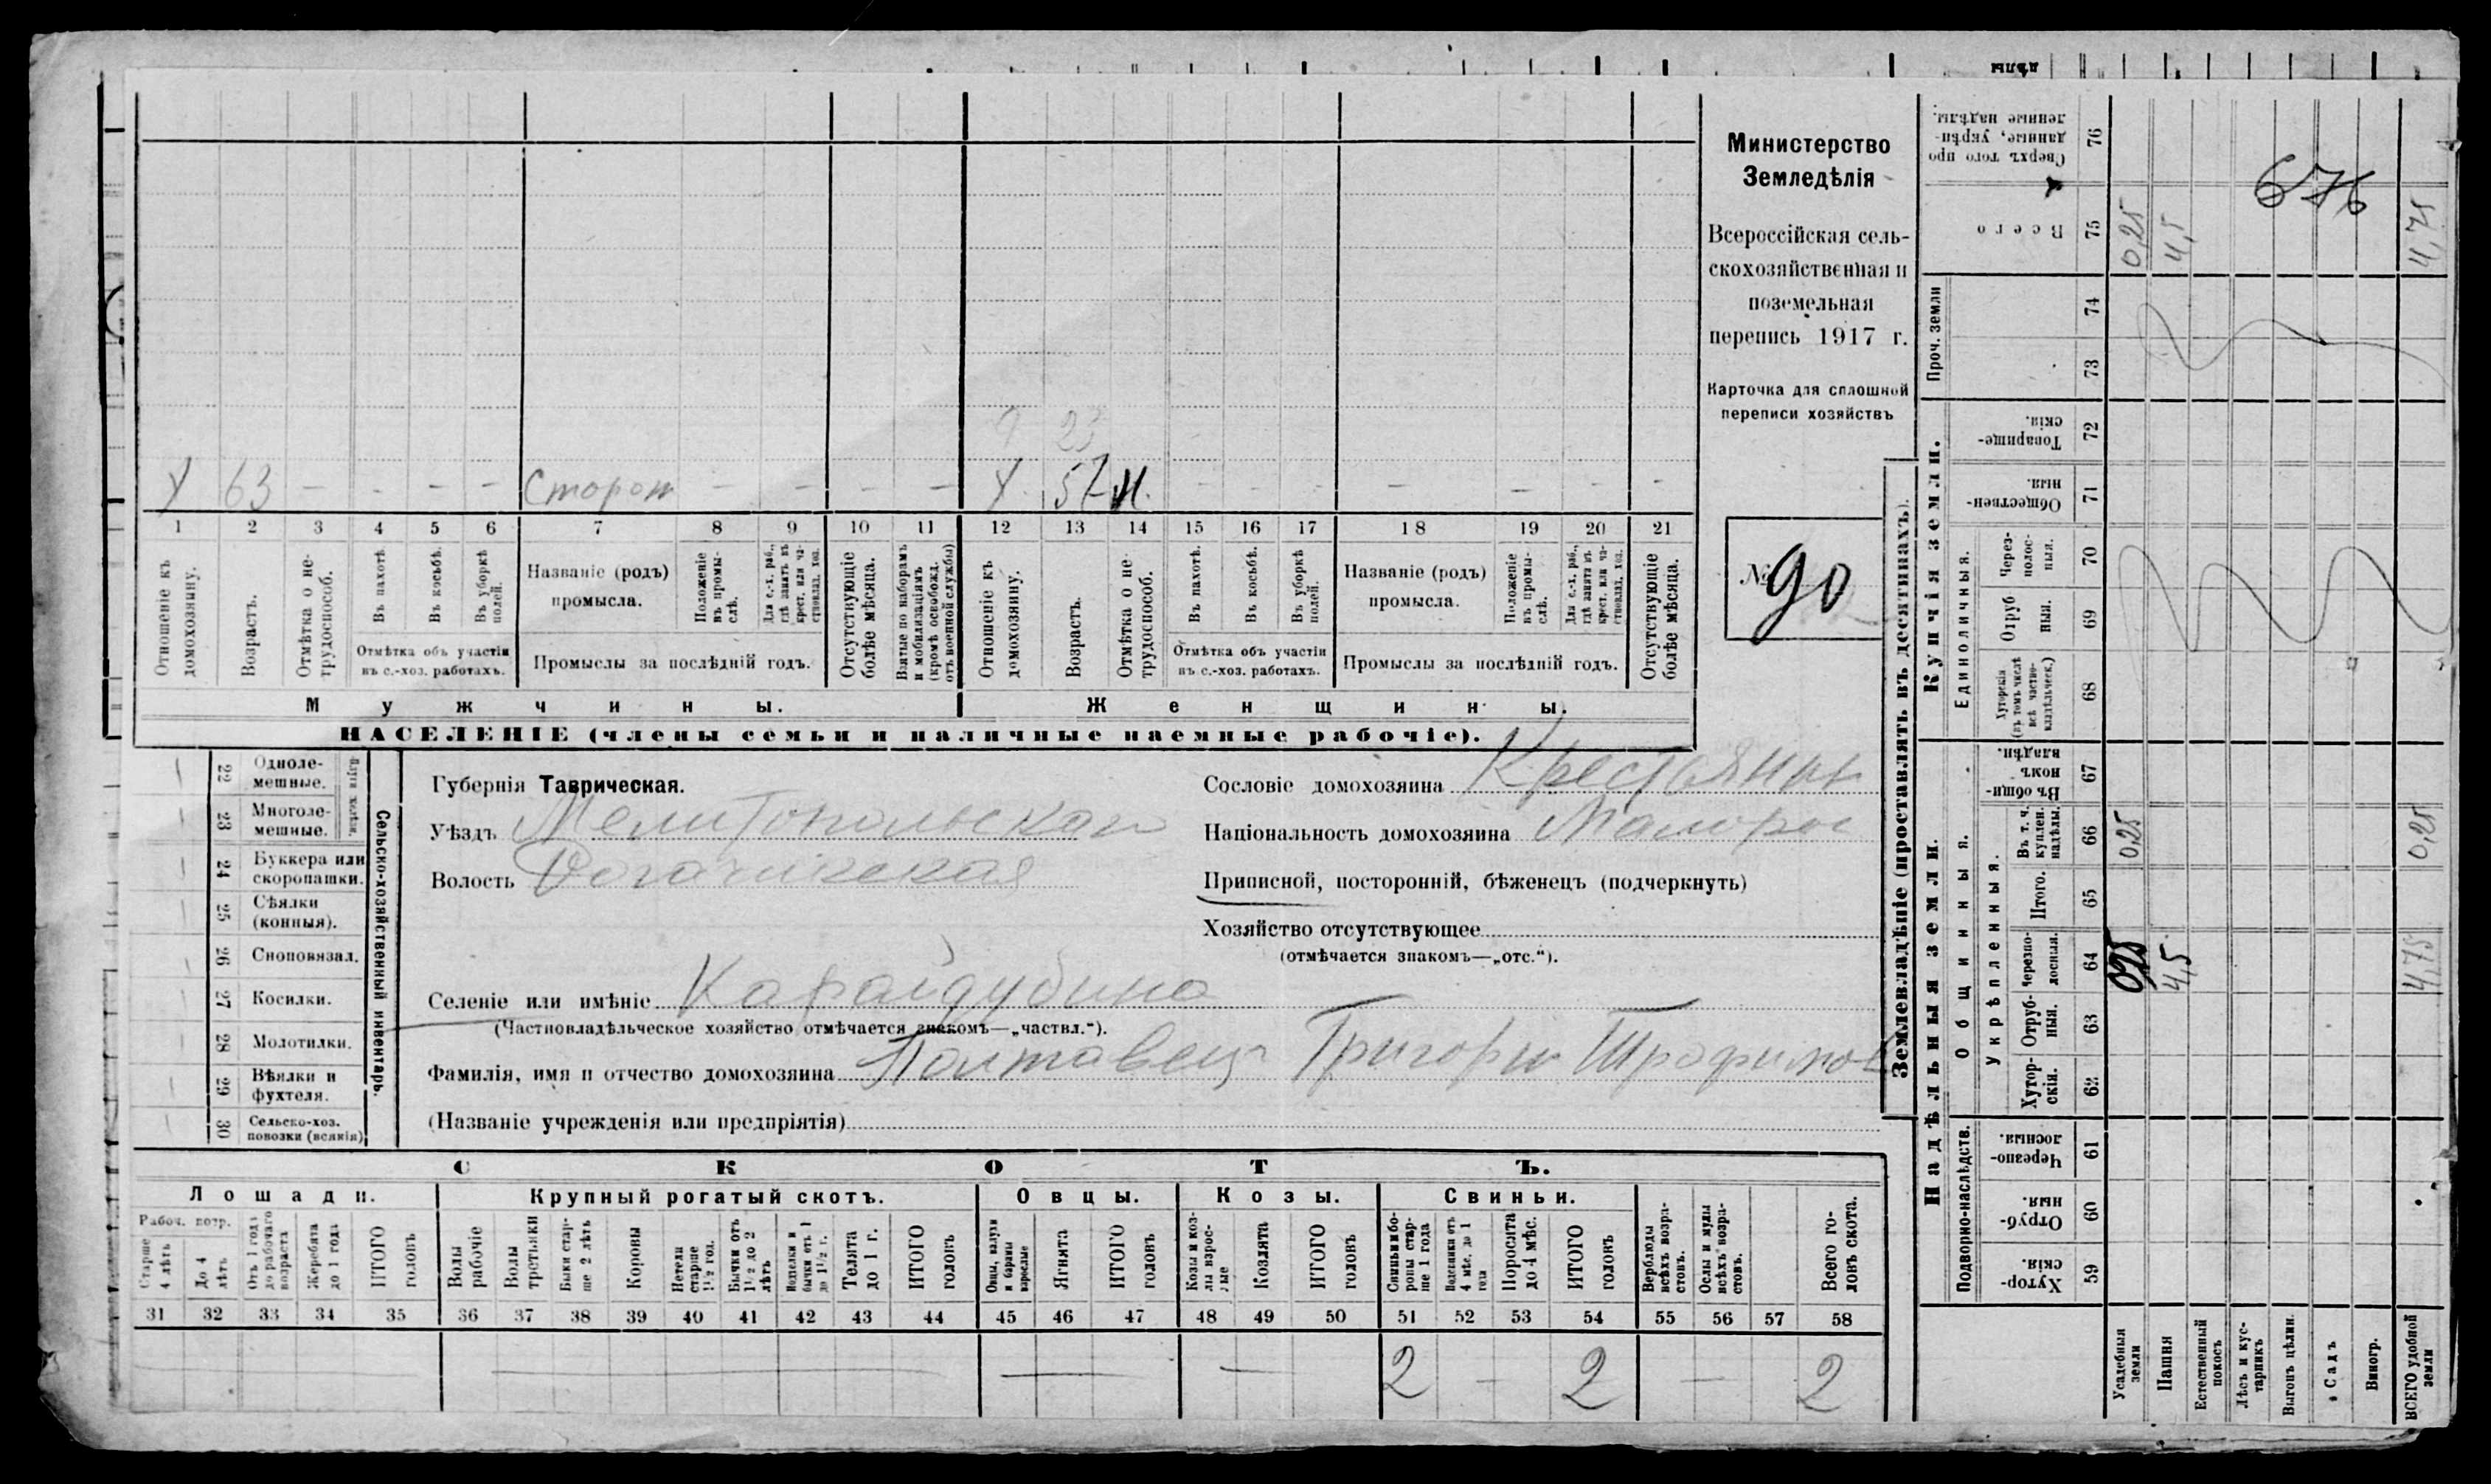 дѣлы
Министерство
Земледѣлія
Всероссійская сель-
скохозяйственная и
поземельная
перепись 1917 г.
Карточка для сплошной
переписи хозяйствъ
№ 90
23
Х 63 – – – – Сторож – – – – Х 57 н. – – – – – – –
1 2 3 4 5 6 7 8 9 10 11 12 13 14 15 16 17 18 19 20 21
Отношеніе къ домохозяину.
Возрастъ.
Отмѣтка о не-трудоспособ.
Въ пахотѣ.
Въ косьбѣ.
Въ уборкѣ полей.
Отмѣтка объ участіи
въ с.-хоз. работахъ.
Названіе (родъ)
промысла.
Положеніе въ промы-слѣ.
Для с.-х. раб., гдѣ занятъ въ крест. или ча-стновлад. хоз.
Промыслы за послѣдній годъ.
Отсутствующіе болѣе мѣсяца.
Взятые по наборамъ и мобилизаціямъ (кромѣ освобожд. отъ военной службы)
Отношеніе къ домохозяину.
Возрастъ.
Отмѣтка о не-трудоспособ.
Въ пахотѣ.
Въ косьбѣ.
Въ уборкѣ полей.
Отмѣтка объ участіи
въ с.-хоз. работахъ.
Названіе (родъ)
промысла.
Положеніе въ промы-слѣ.
Для с.-х. раб., гдѣ занятъ въ крест. или ча-стновлад. хоз.
Промыслы за послѣдній годъ.
Отсутствующіе болѣе мѣсяца.
Мужчины.
Женщины.
НАСЕЛЕНІЕ (члены семьи и наличные наемные рабочіе).
Сельско-хозяйственный инвентарь.
22 Одноле-
мешные.
23 Многоле-
мешные.
24 Буккера или
скоропашки.
25 Сѣялки
(конныя).
26 Сноповязал.
27 Косилки.
28 Молотилки.
29 Вѣялки и
фухтеля.
30 Сельско-хоз.
повозки (всякія)
Губернія Таврическая.
Уѣздъ Мелитопольскаго
Волость Рогачикская
Сословіе домохозяина Крестьянин
Національность домохозяина Малорос
Приписной, посторонній, бѣженецъ (подчеркнуть)
Хозяйство отсутствующее
(отмѣчается знакомъ—„отс.“).
Селеніе или имѣніе Карайдубина
(Частновладѣльческое хозяйство отмѣчается знакомъ—„частвл.“).
Фамилія, имя и отчество домохозяина Полтавец Григорій Трофимов
(Названіе учрежденія или предпріятія)
СКОТЪ.
Лошади.
Крупный рогатый скотъ.
Овцы.
Козы.
Свиньи.
Рабоч. возр.
Старше 4 лѣтъ
До 4 лѣтъ
Отъ 1 года до рабочаго возраста
Жеребята до 1 года
ИТОГО головъ
Волы рабочіе
Волы третьяки
Быки стар-ше 2 лѣтъ
Коровы
Нетели старше 1½ год.
Бычки отъ 1½ до 2 лѣтъ
Нетелки и бычки отъ 1 до 1½ г.
Телята до 1 г.
ИТОГО головъ
Овцы, валухи и бараны взрослые
Ягнята
ИТОГО головъ
Козы и коз-лы взрос-лые
Козлята
ИТОГО головъ
Свиньи и бо-ровы стар-ше 1 года
Подсвинки отъ 4 мѣс. до 1 года
Поросята до 4 мѣс.
ИТОГО головъ
Верблюды всѣхъ возра-стовъ.
Ослы и мулы всѣхъ возра-стовъ.
Всего го-ловъ скота.
31 32 33 34 35 36 37 38 39 40 41 42 43 44 45 46 47 48 49 50 51 52 53 54 55 56 57 58
2 – 2 – 2
Землевладѣніе (проставлять въ десятинахъ).
Надѣльныя земли.
Купчія земли.
Проч. земли
Подворно-наслѣдств.
Общинныя.
Укрѣпленныя.
Единоличныя.
Хутор-скія. 59
Отруб-ныя. 60
Черезпо-лосныя. 61
Хутор-скія. 62
Отруб-ныя. 63
Черезпо-лосныя. 64
Итого. 65
Въ т. ч. куплен. надѣлы. 66
Въ общи-номъ владѣн. 67
Хуторскія (въ томъ числѣ всѣ частно-владѣльческ.) 68
Отруб ныя. 69
Через-полос-ныя. 70
Обществен-ныя. 71
Товарище-скія. 72
73
74
Всего 75
Сверхъ того про данные, укрѣп-ленные надѣлы. 76
Усадебныя земли
0,25
0,25
0,25
Пашня
4,5
4,5
Естественный покосъ
Лѣсъ и кус-тарникъ
Выгонъ цѣлин.
Садъ
Виногр.
ВСЕГО удобной земли
4,75
0,25
4,75
676